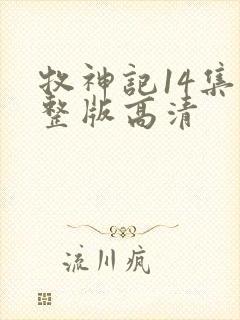 牧神記14集
整版高清
流川疯